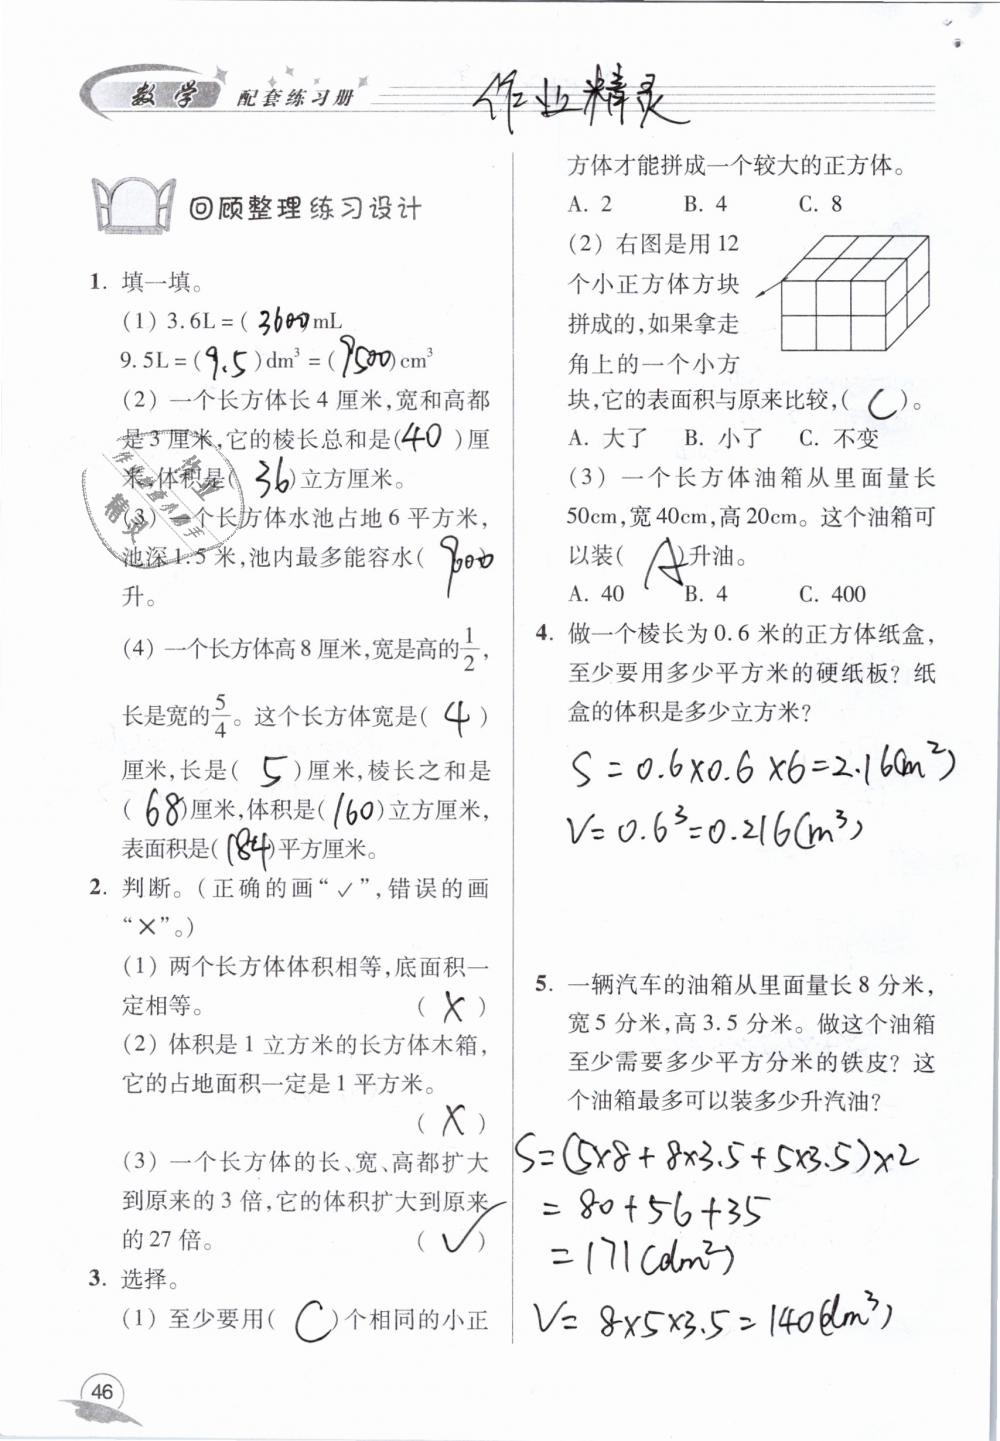 数学 配套练习册
作业精灵
回顾整理 练习设计
1. 填一填。
(1) 3.6L=( 3600 )mL
9.5L=( 9.5 )dm³=( 9500 )cm³
(2) 一个长方体长 4 厘米,宽和高都
是 3 厘米,它的棱长总和是( 40 )厘
米,体积是( 36 )立方厘米。
(3) 一个长方体水池占地 6 平方米,
池深 1.5 米,池内最多能容水( 9000 )
升。
(4) 一个长方体高 8 厘米,宽是高的1/2,
长是宽的5/4。这个长方体宽是( 4 )
厘米,长是( 5 )厘米,棱长之和是
( 68 )厘米,体积是( 160 )立方厘米,
表面积是( 184 )平方厘米。
2. 判断。(正确的画“✓”,错误的画
“×”。)
(1) 两个长方体体积相等,底面积一
定相等。 ( × )
(2) 体积是 1 立方米的长方体木箱,
它的占地面积一定是 1 平方米。
( × )
(3) 一个长方体的长、宽、高都扩大
到原来的 3 倍,它的体积扩大到原来
的 27 倍。 ( ✓ )
3. 选择。
(1) 至少要用( C )个相同的小正
方体才能拼成一个较大的正方体。
A. 2 B. 4 C. 8
(2) 右图是用 12
个小正方体方块
拼成的,如果拿走
角上的一个小方
块,它的表面积与原来比较,( C )。
A. 大了 B. 小了 C. 不变
(3) 一个长方体油箱从里面量长
50cm,宽 40cm,高 20cm。这个油箱可
以装( A )升油。
A. 40 B. 4 C. 400
4. 做一个棱长为 0.6 米的正方体纸盒,
至少要用多少平方米的硬纸板? 纸
盒的体积是多少立方米?
S=0.6×0.6×6=2.16(m²)
V=0.6³=0.216(m³)
5. 一辆汽车的油箱从里面量长 8 分米,
宽 5 分米,高 3.5 分米。做这个油箱
至少需要多少平方分米的铁皮? 这
个油箱最多可以装多少升汽油?
S=(5×8+8×3.5+5×3.5)×2
=80+56+35
=171(dm²)
V=8×5×3.5=140(dm³)
46